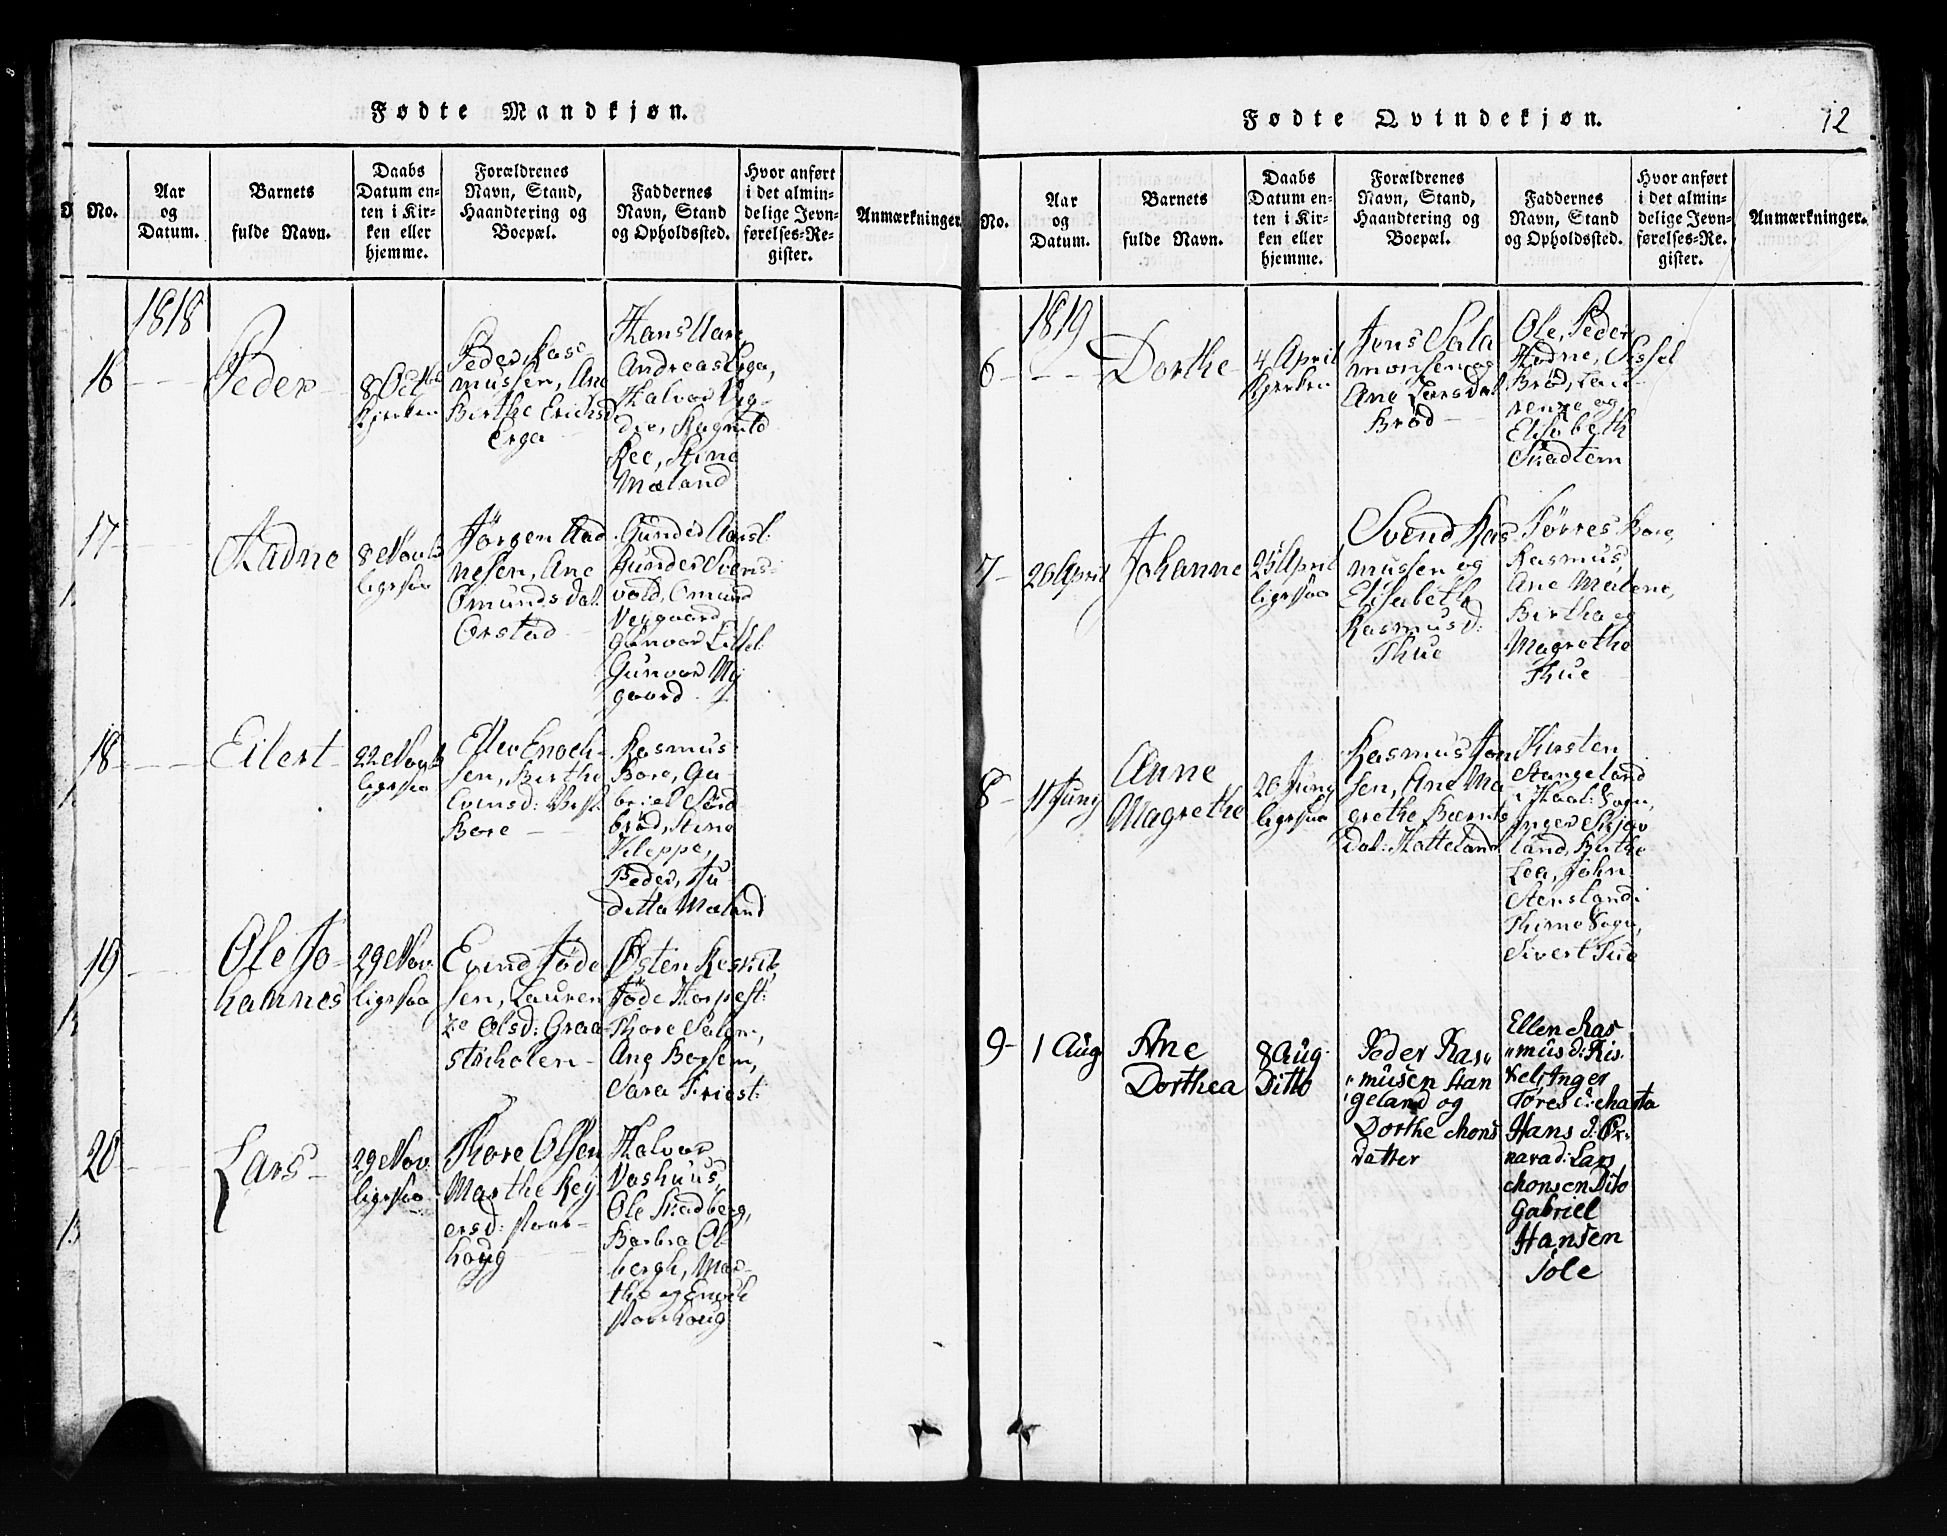 Fødte Mandkjøn.
No.
Aar
og
Datum.
Barnets
fulde Navn.
Daabs
Datum en-
ten i Kir-
ken eller
hjemme.
Forældrenes
Navn, Stand,
Haandtering og
Boepæl.
Faddernes
Navn, Stand
og Opholdssted.
Hvor anført
i det almin-
delige Jevn-
førelses-Re-
gister.
Anmærkninger.
1818
16
Peder
8 Octbr
Kierken
Peder Ras
mussen, Ane
Birthe Ericksd
Erga
Hans
Andreas Erga,
Halvor Vig-
die, Ragnild
Ree, Stine
Mæland
17
Aadne
8 Novb
ligesaa
Jörgen Aad
nesen, Ane
Omunds dat:
Orstad
Gunder
Gunder Svens-
vold, Omund
Nygaard
Gunvor
Gunvor Ny
gaard
18
Eilert
22 Novb
ligesaa
Enoch-
sen, Birthe
Evensd:
Bore
Rasmus
Bore, Ga-
briel Sörd
bröd, Stine
Kleppe,
Peder, Ju-
ditta Mæland
19
Ole Jo-
hannes
29 Nov
ligesaa
Evind Jöde
sen, Lauren
ze Olsd: Graa-
steholen
Östen
Jöde Horpest:
Thore Salom-
Ane Borsem,
Sara Friest:
20
Lars
29 Nov
ligesaa
Thore Olsen
Marthe Rey
ersd:
houg
Halvor
Vashuus,
Ole Skadberg,
Barbra Ol-
bergh, Mar-
the og Enoch
houg
Fødte Qvindekjøn.
12
No.
Aar
og
Datum.
Barnets
fulde Navn.
Daabs
Datum en-
ten i Kir-
ken eller
hjemme.
Forældrenes
Navn, Stand,
Haandtering og
Boepæl.
Faddernes
Navn, Stand
og Opholdssted.
Hvor anført
i det almin-
delige Jevn-
førelses-Re.
gister.
Anmærkninger.
1819
6
Dorthe
4 April
Kierken
Jens Salo
monsen og
Ane Larsdat
Bröd
Ole, Peder
Hodne, Sissel
Bröd, Lau-
renze og
Elisabeth
Skadtem
7
20 April
Johanne
25 April
ligesaa
Svend Ras
mussen og
Elisabeth
Rasmusd:
Thue
Törres Bore,
Rasmus,
Ane Malene,
Birtha og
Magrethe
Thue
8
11 Juny
Anne
Magrethe
20 Juny
ligesaa
Rasmus Jon
sen, Ane Ma-
grethe Bernts
Dat: Hatteland
Kirsten
Stangeland
i Haal: Sogn,
Inger Skjæv
land, Birthe
Lea, John
Stensland i
Thime Sogn,
Sivert Tue
9
1 Aug
Ane
Dorthea
8 Aug.
Ditto
Peder Ras
musen Stan
geland og
Dorthe Mons
datter
Ellen Ras
mus d:
Inger
Töres d: Marta
Hans d:
Lars
Monsen Dito
Gabriel
Hansen
Sole